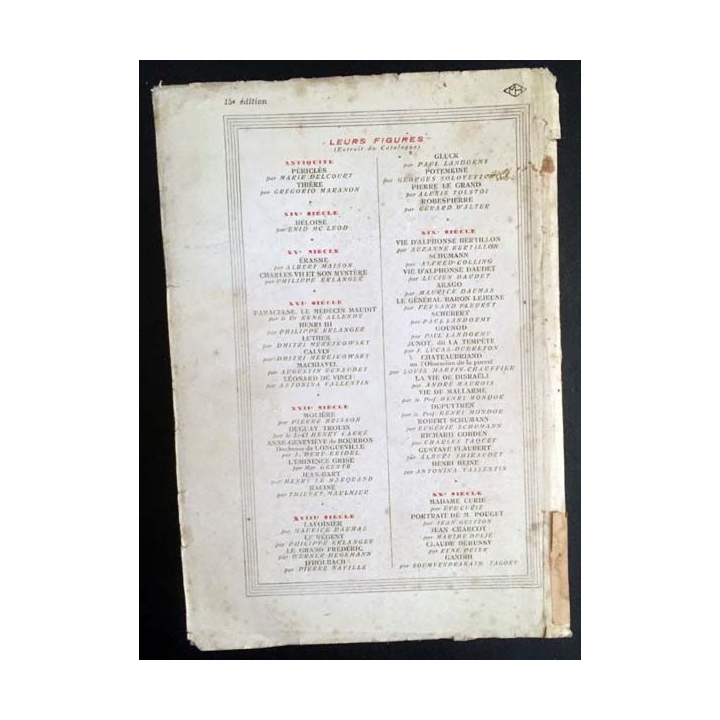 15e édition
LEURS FIGURES
(Extrait du Catalogue)
ANTIQUITÉ
PÉRICLÈS
par MARIE DELCOURT
TIBÈRE
par GREGORIO MARANON
XIVe SIÈCLE
HÉLOISE
par ENID MC LEOD
XVe SIÈCLE
ÉRASME
par ALBERT MAISON
CHARLES VII ET SON MYSTÈRE
par PHILIPPE ERLANGER
XVIe SIÈCLE
PARACELSE, LE MEDECIN MAUDIT
par le Dr RENÉ ALLENDY
HENRI III
par PHILIPPE ERLANGER
LUTHER
par DMITRI MEREJKOWSKY
CALVIN
par DMITRI MEREJKOWSKY
MACHIAVEL
par AUGUSTIN RENAUDET
LÉONARD DE VINCI
par ANTONINA VALLENTIN
XVIIe SIÈCLE
MOLIÈRE
par PIERRE BRISSON
DUGUAY TROUIN
par le HENRY CARRÉ
ANNE-GENEVIÈVE de BOURBON
Duchesse de LONGUEVILLE
par J. DEBU-BRIDEL
L'ÉMINENCE GRISE
par Mgr GRENTE
JEAN-BART
par HENRY LE MARQUAND
RACINE
par THIERRY MAULNIER
XVIIIe SIÈCLE
LAVOISIER
par MAURICE DAUMAS
LE RÉGENT
par PHILIPPE ERLANGER
LE GRAND FRÉDÉRIC
par WERNER HEGEMANN
D'HOLBACH
par PIERRE NAVILLE
GLUCK
par PAUL LANDORMY
POTEMKINE
par GEORGES SOLOVEYTCHIK
PIERRE LE GRAND
par ALEXIS TOLSTOI
ROBESPIERRE
par GÉRARD WALTER
XIXe SIÈCLE
VIE D'ALPHONSE BERTILLON
par SUZANNE BERTILLON
SCHUMANN
par ALFRED COLLING
VIE D'ALPHONSE DAUDET
par LUCIEN DAUDET
ARAGO
par MAURICE DAUMAS
LE GÉNÉRAL BARON LEJEUNE
par FERNAND PLEUREY
SCHUBERT
par PAUL LANDORMY
GOUNOD
par PAUL LANDORMY
JUNOT, dit LA TEMPÊTE
par J. LUCAS-DUBRETON
CHATEAUBRIAND
ou l'Obsession de la pureté
par LOUIS MARTIN-CHAUFFIER
LA VIE DE DISRAËLI
par ANDRÉ MAUROIS
VIE DE MALLARMÉ
par le Prof. HENRI MONDOR
DUPUYTREN
par le Prof. HENRI MONDOR
ROBERT SCHUMANN
par EUGÉNIE SCHUMANN
RICHARD COBDEN
par CHARLES TAQUEY
GUSTAVE FLAUBERT
par ALBERT THIBAUDET
HENRI HEINE
par ANTONINA VALLENTIN
XXe SIÈCLE
MADAME CURIE
par EVE CURIE
PORTRAIT DE M. POUGET
par JEAN GUITTON
JEAN CHARCOT
par MARTHE OULIÉ
CLAUDE DEBUSSY
par RENÉ PETER
GANDHI
par SOUMYENDRANATH TAGORE